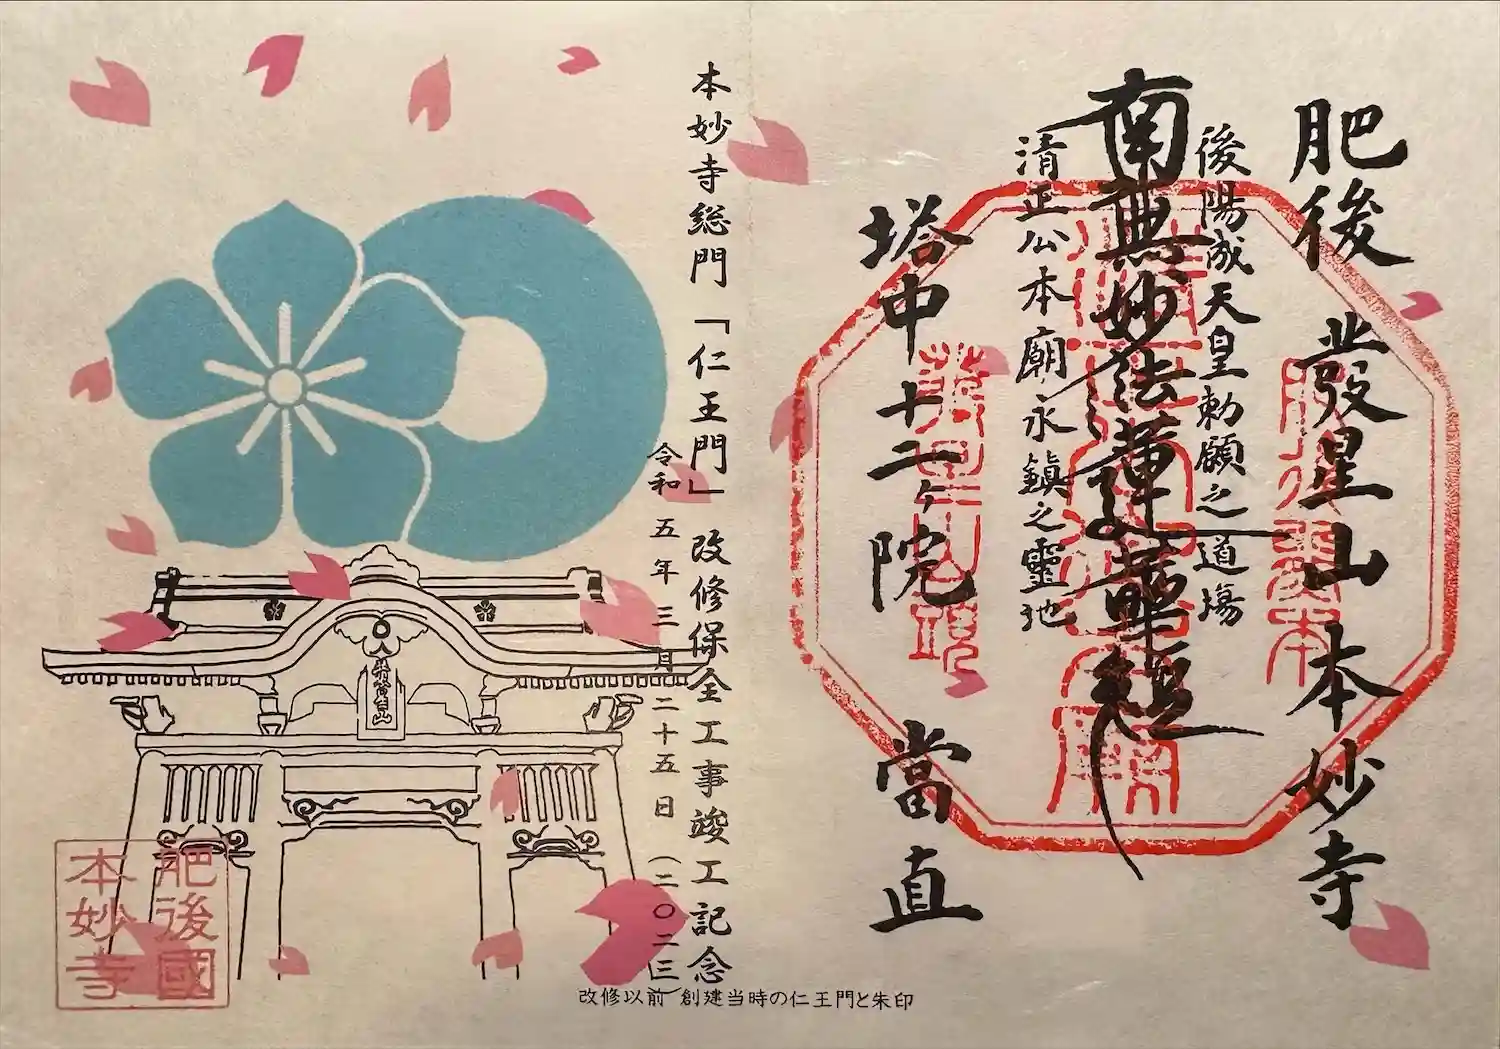 肥後 發星山 本妙寺
後陽成天皇勅願之道場
南無妙法蓮華経
清正公本廟永鎮之靈地
塔中十二ヶ院 當直
本妙寺総門「仁王門」改修保全工事竣工記念
令和五年三月二十五日(二〇二三)
肥後國
本妙寺
改修以前 創建当時の仁王門と朱印